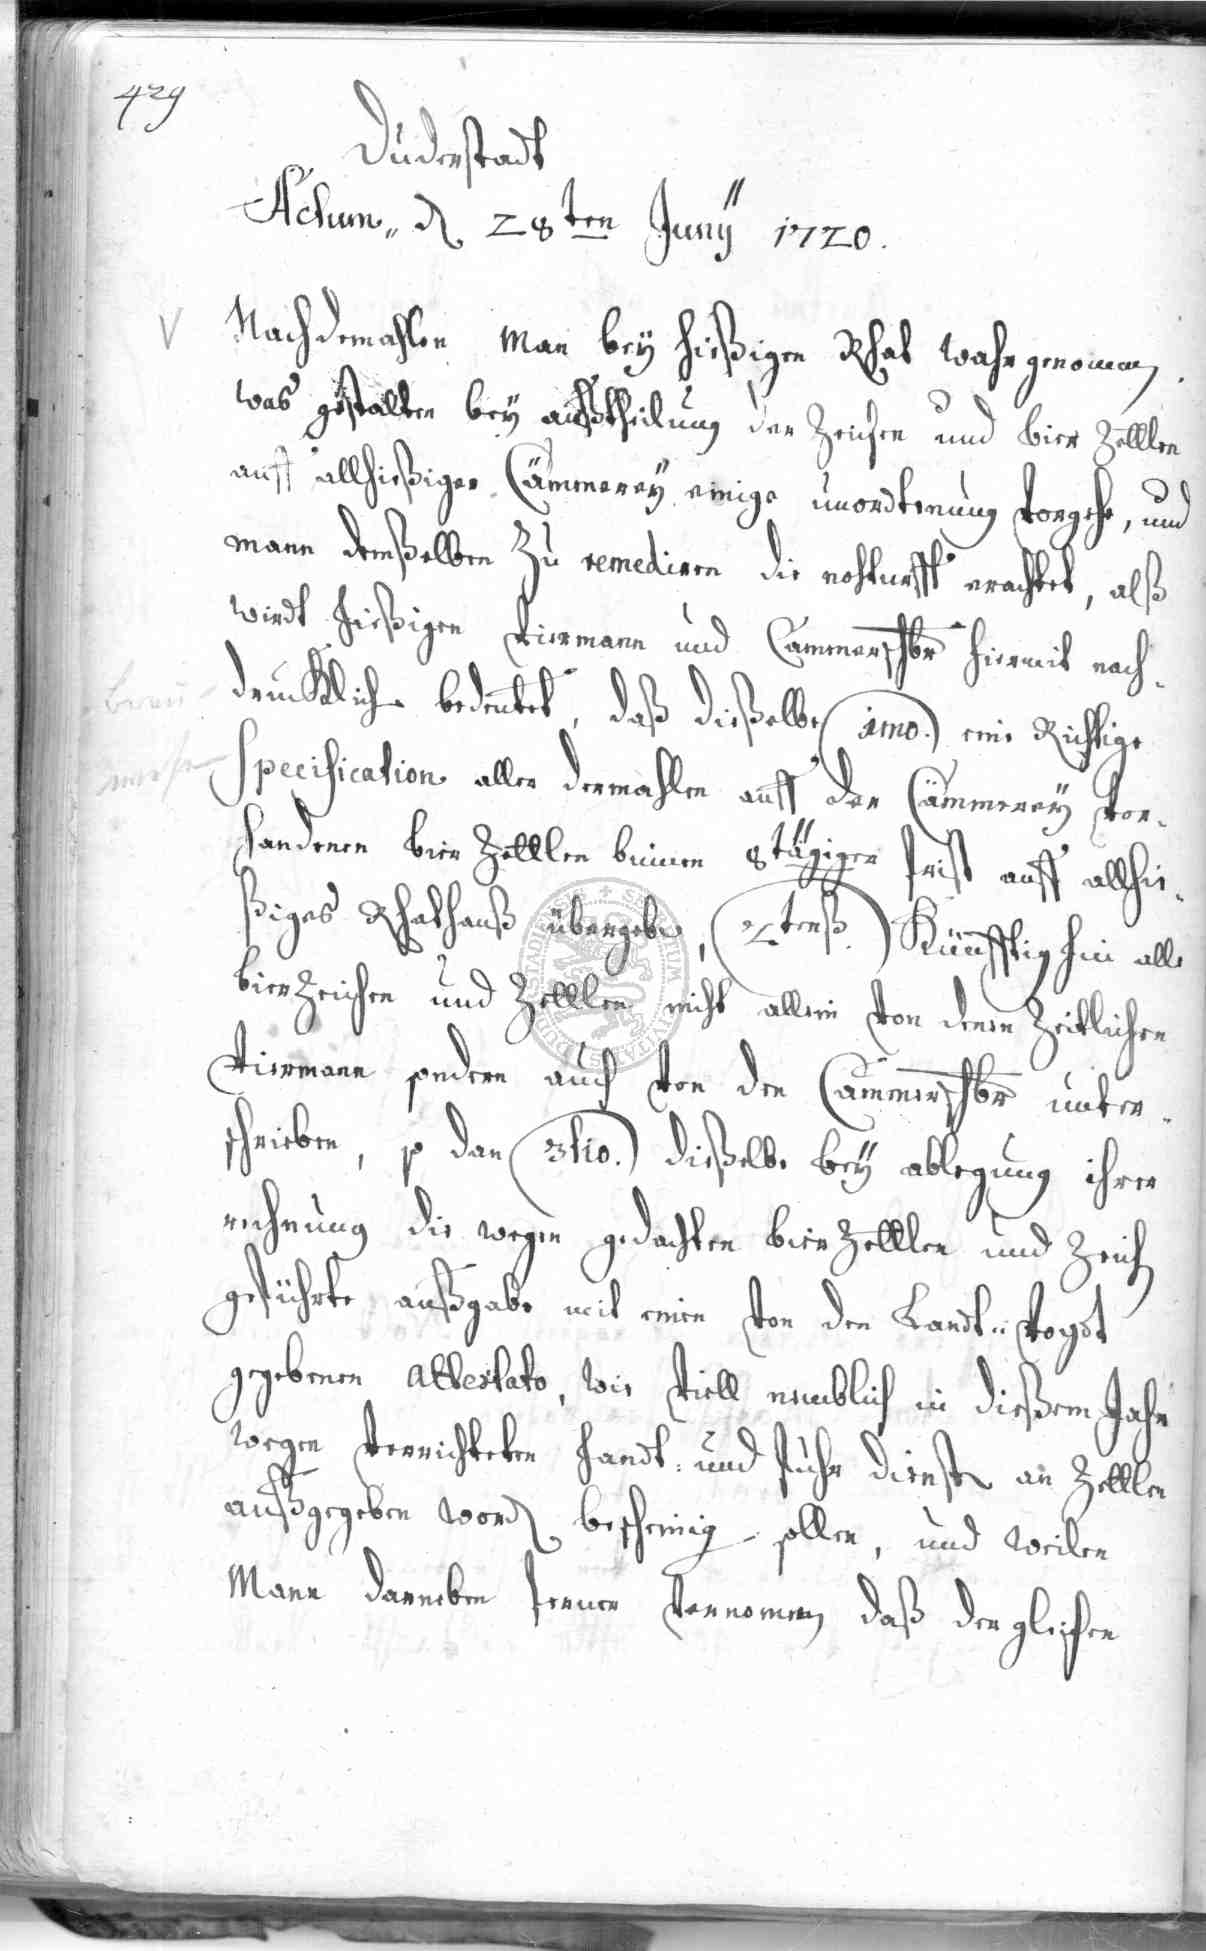 429
Duderstadt
Actum, d 28ten Junÿ 1720.
V
Nachdemahlen Man beÿ hießigen Rhat wahrgenomen,
was gestalten bey außtheilung der Zeichen und bier Zettlen
auff allhießiger Cämmereÿ einige unordtenung vorgehe, und
mann demßelben Zu remediren die nohturfft erachtet, alß
wirdt hießigen Viermann und Cammerschbr hiermit nach-
drucklich bedeutet, daß dießelbe 1mo. eine Richtige
Specification aller dermahlen auff der Cämmereÿ vor-
handenen bier Zettlen binnen 8tägiger frist auff allhie-
ßiges Rhathauß übergeben, 2tenß. Künfftighin alle
bierZeichen und Zettlen nicht allein von denen Zeitlichen
Viermann sondern auch von den Cammerschbr unter-
schrieben, so dan 3tio. dießelbe beÿ ablegung ihrer
rechnung die wegen gedachten bierZettlen und Zeich
geführte außgabe mit einen von den Landt-Vogdt
gegebenen Attestato, wie viell nemblich in dießem Jahr
wegen verrichteten handt- und fuhr dienste an Zettlen
außgegeben word bescheinig sollen, und weilen
Mann darneben ferner vernomen daß dergleichen